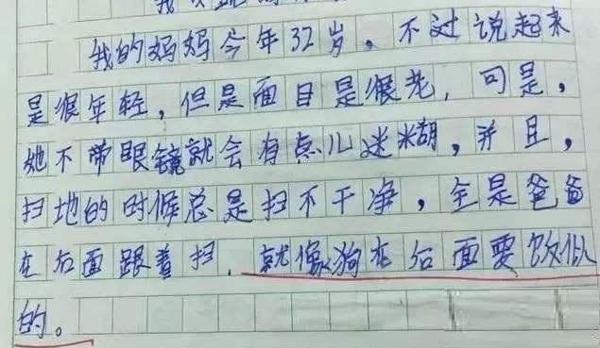 我的妈妈今年32岁，不过说起来
是很年轻，但是面目是很老，可是，
她不带眼镜就会有点儿迷糊，并且，
扫地的时候总是扫不干净，全是爸爸
在后面跟着扫，就像狗在后面要饭似
的。